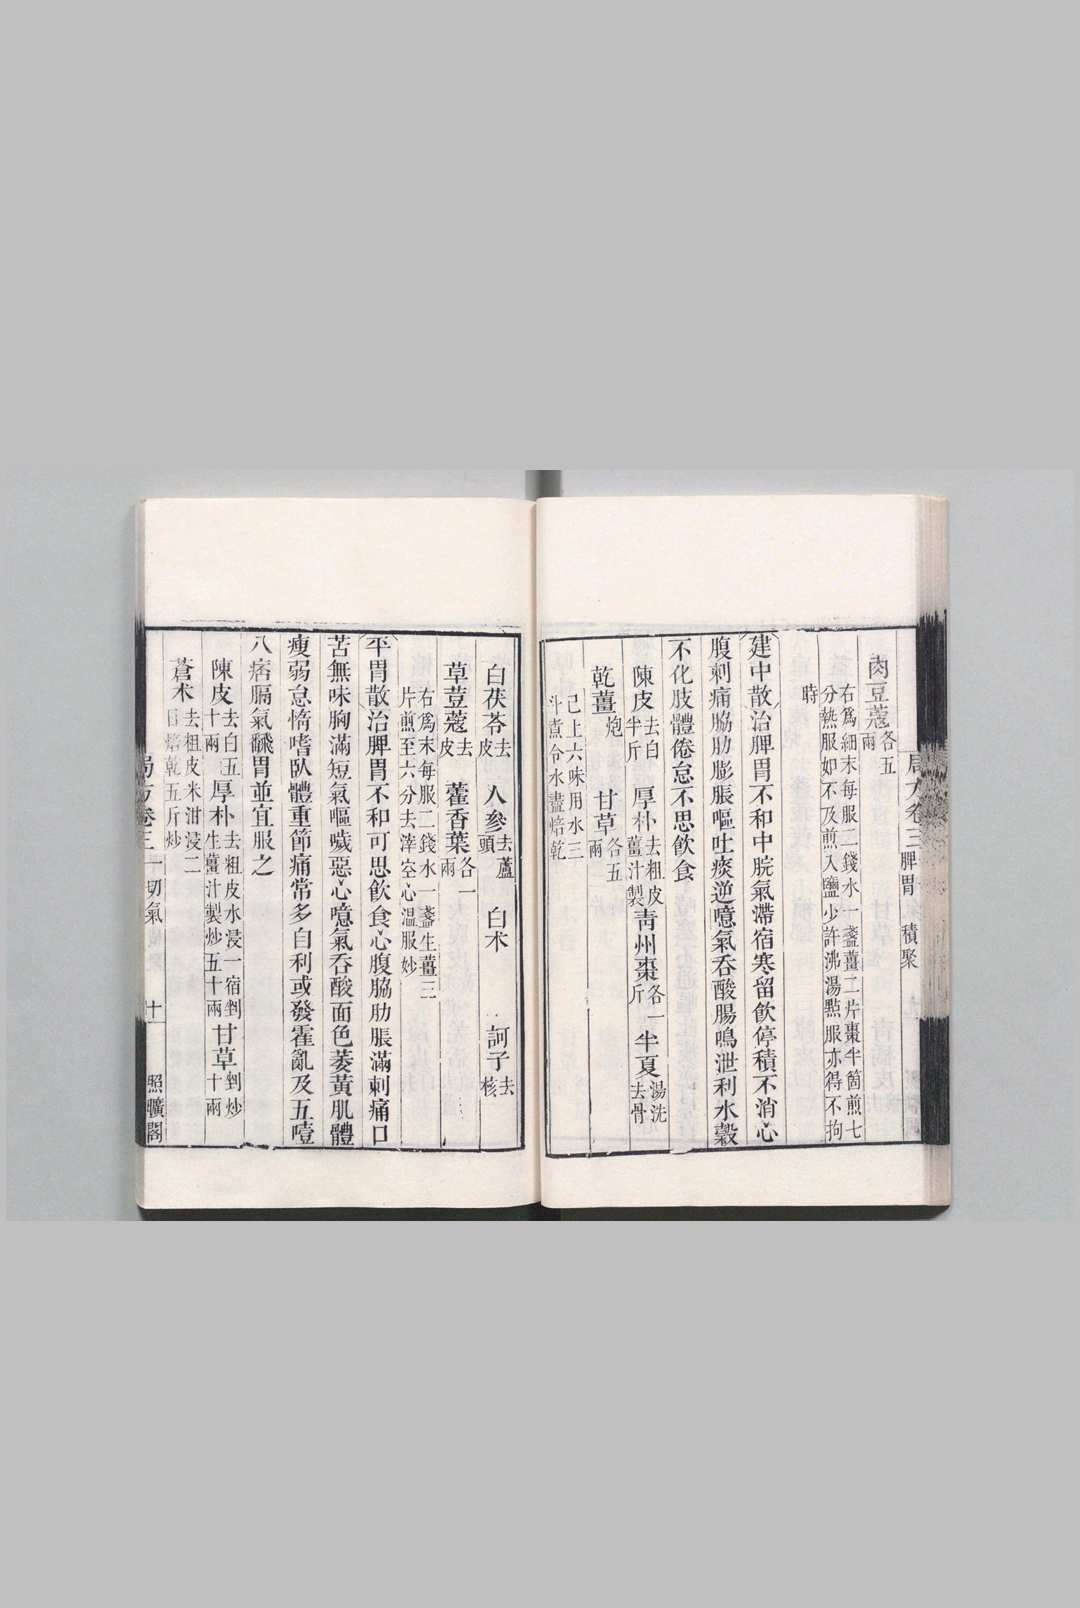 局方卷三 脾胃 積聚
肉豆蔻各五兩
右爲細末每服二錢水一盞薑二片棗半箇煎七
分熱服如不及煎入鹽少許沸湯點服亦得不拘
時
建中散治脾胃不和中脘氣滯宿寒留飲停積不消心
腹刺痛脇肋膨脹嘔吐痰逆噫氣吞酸腸鳴泄利水穀
不化肢體倦怠不思飲食
陳皮去白半斤 厚朴去粗皮薑汁製 靑州棗各一斤 半夏湯洗去骨
乾薑炮 甘草各五兩
已上六味用水三
斗煮令水盡焙乾
白茯苓去皮 人參去蘆頭 白朮 訶子去核
草荳蔻去皮 藿香葉各一兩
右爲末每服二錢水一盞生薑三
片煎至六分去滓空心溫服妙
平胃散治脾胃不和可思飲食心腹脇肋脹滿刺痛口
苦無味胸滿短氣嘔噦惡心噫氣吞酸面色萎黃肌體
瘦弱怠惰嗜臥體重節痛常多自利或發霍亂及五噎
八痞膈氣飜胃並宜服之
陳皮去白五十兩 厚朴去粗皮水浸一宿剉生薑汁製炒五十兩 甘草剉炒十兩
蒼朮去粗皮米泔浸二日焙乾五斤炒
局方卷三 一切氣 十 照曠閣